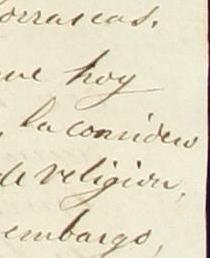 borrascas.
que hoy
, la considero
de religion,
embargo,